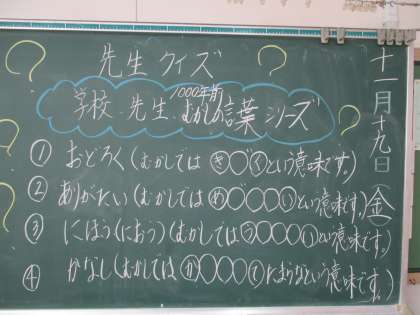 十一月十九日(金)
先生クイズ
1000年前
学校、先生、むかしの言葉シリーズ
① おどろく(むかしでは き〇くという意味です。)
② ありがたい(むかしでは め〇〇〇いという意味です。)
③ にほう(におう)(むかしでは う〇〇〇いという意味です。)
④ かなし(むかしでは か〇〇〇てたまらなという意味です。)